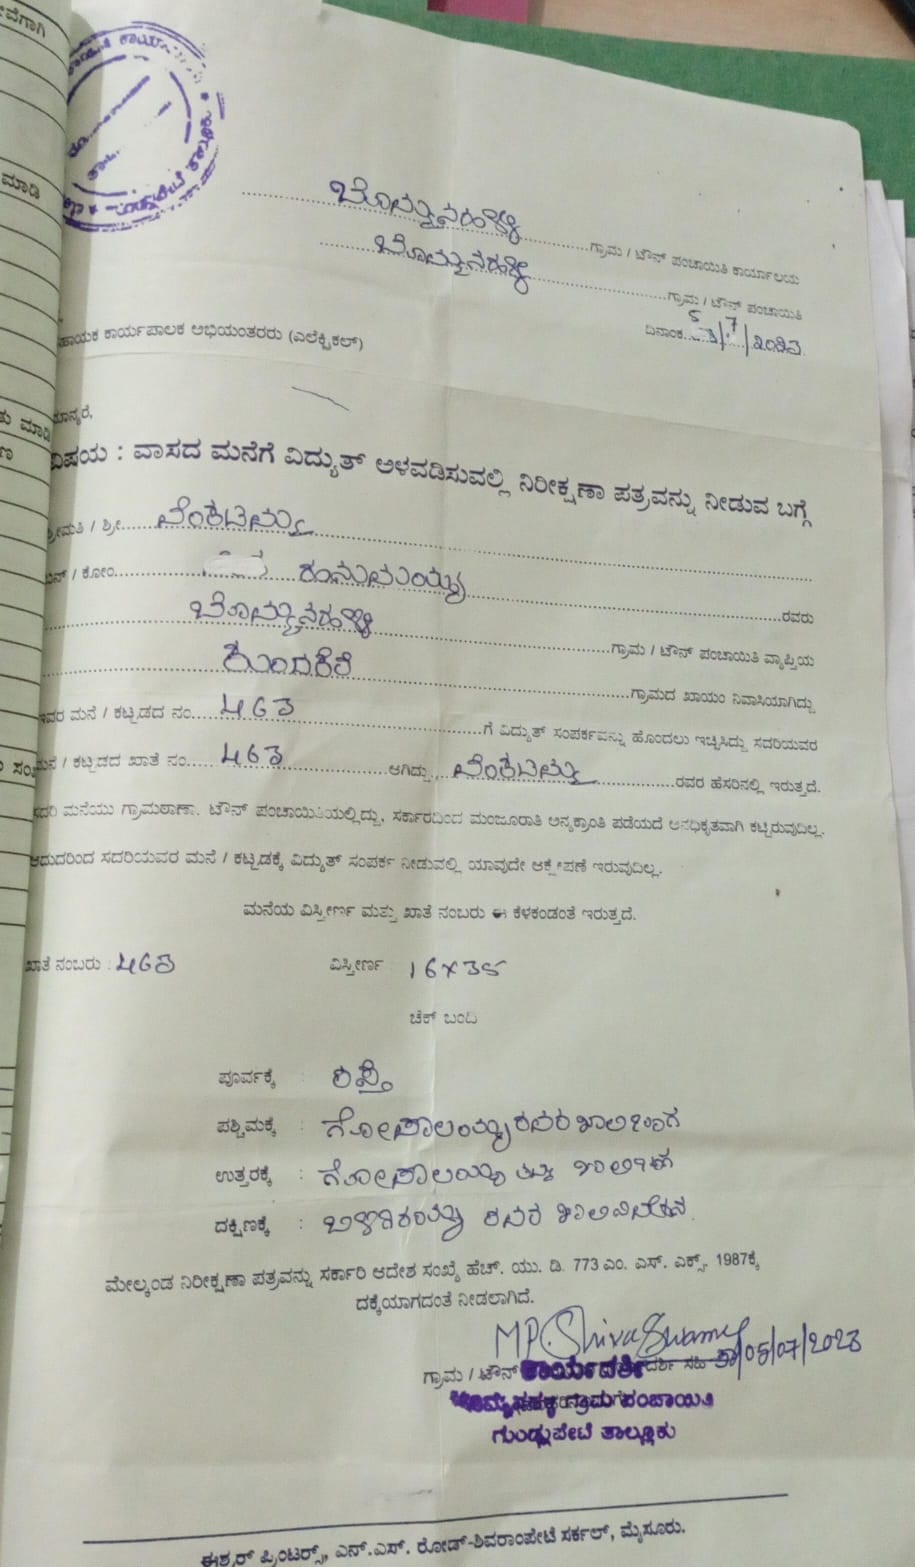 ಬೊಮ್ಮನಹಳ್ಳಿ ಗ್ರಾಮ / ಟೌನ್ ಪಂಚಾಯಿತಿ ಕಾರ್ಯಾಲಯ
ಬೊಮ್ಮನಹಳ್ಳಿ ಗ್ರಾಮ / ಟೌನ್ ಪಂಚಾಯಿತಿ
ದಿನಾಂಕ 5/7/2023
ಕಾರ್ಯಪಾಲಕ ಅಭಿಯಂತರರು (ಎಲೆಕ್ಟ್ರಿಕಲ್)
ವಿಷಯ : ವಾಸದ ಮನೆಗೆ ವಿದ್ಯುತ್ ಅಳವಡಿಸುವಲ್ಲಿ ನಿರೀಕ್ಷಣಾ ಪತ್ರವನ್ನು ನೀಡುವ ಬಗ್ಗೆ
ಶ್ರೀಮತಿ / ಶ್ರೀ ವೆಂಕಟಮ್ಮ
/ ಕೋಂ ರವರು
ಬೊಮ್ಮನಹಳ್ಳಿ ಗ್ರಾಮ / ಟೌನ್ ಪಂಚಾಯಿತಿ ವ್ಯಾಪ್ತಿಯ
ಕುಂದಕೆರೆ ಗ್ರಾಮದ ಖಾಯಂ ನಿವಾಸಿಯಾಗಿದ್ದು
ಇವರ ಮನೆ / ಕಟ್ಟಡದ ನಂ. 463 ಗೆ ವಿದ್ಯುತ್ ಸಂಪರ್ಕವನ್ನು ಹೊಂದಲು ಇಚ್ಛಿಸಿದ್ದು ಸದರಿಯವರ
ಮನೆ / ಕಟ್ಟಡದ ಖಾತೆ ನಂ. 463 ಆಗಿದ್ದು, ವೆಂಕಟಮ್ಮ ರವರ ಹೆಸರಿನಲ್ಲಿ ಇರುತ್ತದೆ.
ಸದರಿ ಮನೆಯು ಗ್ರಾಮಠಾಣಾ. ಟೌನ್ ಪಂಚಾಯಿತಿಯಲ್ಲಿದ್ದು, ಸರ್ಕಾರದಿಂದ ಮಂಜೂರಾತಿ ಅನ್ಯಕ್ರಾಂತಿ ಪಡೆಯದೆ ಅನಧಿಕೃತವಾಗಿ ಕಟ್ಟಿರುವುದಿಲ್ಲ.
ಆದುದರಿಂದ ಸದರಿಯವರ ಮನೆ / ಕಟ್ಟಡಕ್ಕೆ ವಿದ್ಯುತ್ ಸಂಪರ್ಕ ನೀಡುವಲ್ಲಿ ಯಾವುದೇ ಆಕ್ಷೇಪಣೆ ಇರುವುದಿಲ್ಲ.
ಮನೆಯ ವಿಸ್ತೀರ್ಣ ಮತ್ತು ಖಾತೆ ನಂಬರು ಈ ಕೆಳಕಂಡಂತೆ ಇರುತ್ತದೆ.
ಖಾತೆ ನಂಬರು : 463 ವಿಸ್ತೀರ್ಣ 16x35
ಚೆಕ್ ಬಂದಿ
ಪೂರ್ವಕ್ಕೆ : ರಸ್ತೆ
ಪಶ್ಚಿಮಕ್ಕೆ : ಗೋಪಾಲಯ್ಯರವರ ಖಾಲಿಜಾಗ
ಉತ್ತರಕ್ಕೆ : ಗೋಪಾಲಯ್ಯ
ದಕ್ಷಿಣಕ್ಕೆ : ರವರ ಖಾಲಿ ನಿವೇಶನ
ಮೇಲ್ಕಂಡ ನಿರೀಕ್ಷಣಾ ಪತ್ರವನ್ನು ಸರ್ಕಾರಿ ಆದೇಶ ಸಂಖ್ಯೆ ಹೆಚ್. ಯು. ಡಿ. 773 ಎಂ. ಎಸ್. ಎಕ್ಸ್. 1987ಕ್ಕೆ
ದಕ್ಕೆಯಾಗದಂತೆ ನೀಡಲಾಗಿದೆ.
MP.ShivaSwamy
05/07/2023
ಗ್ರಾಮ / ಟೌನ್ ಕಾರ್ಯದರ್ಶಿ ಸಹಿ
ಬೊಮ್ಮನಹಳ್ಳಿ ಗ್ರಾಮ ಪಂಚಾಯಿತಿ
ಗುಂಡ್ಲುಪೇಟೆ ತಾಲ್ಲೂಕು
ಈಶ್ವರ್ ಪ್ರಿಂಟರ್ಸ್, ಎನ್.ಎಸ್. ರೋಡ್-ಶಿವರಾಂಪೇಟೆ ಸರ್ಕಲ್, ಮೈಸೂರು.